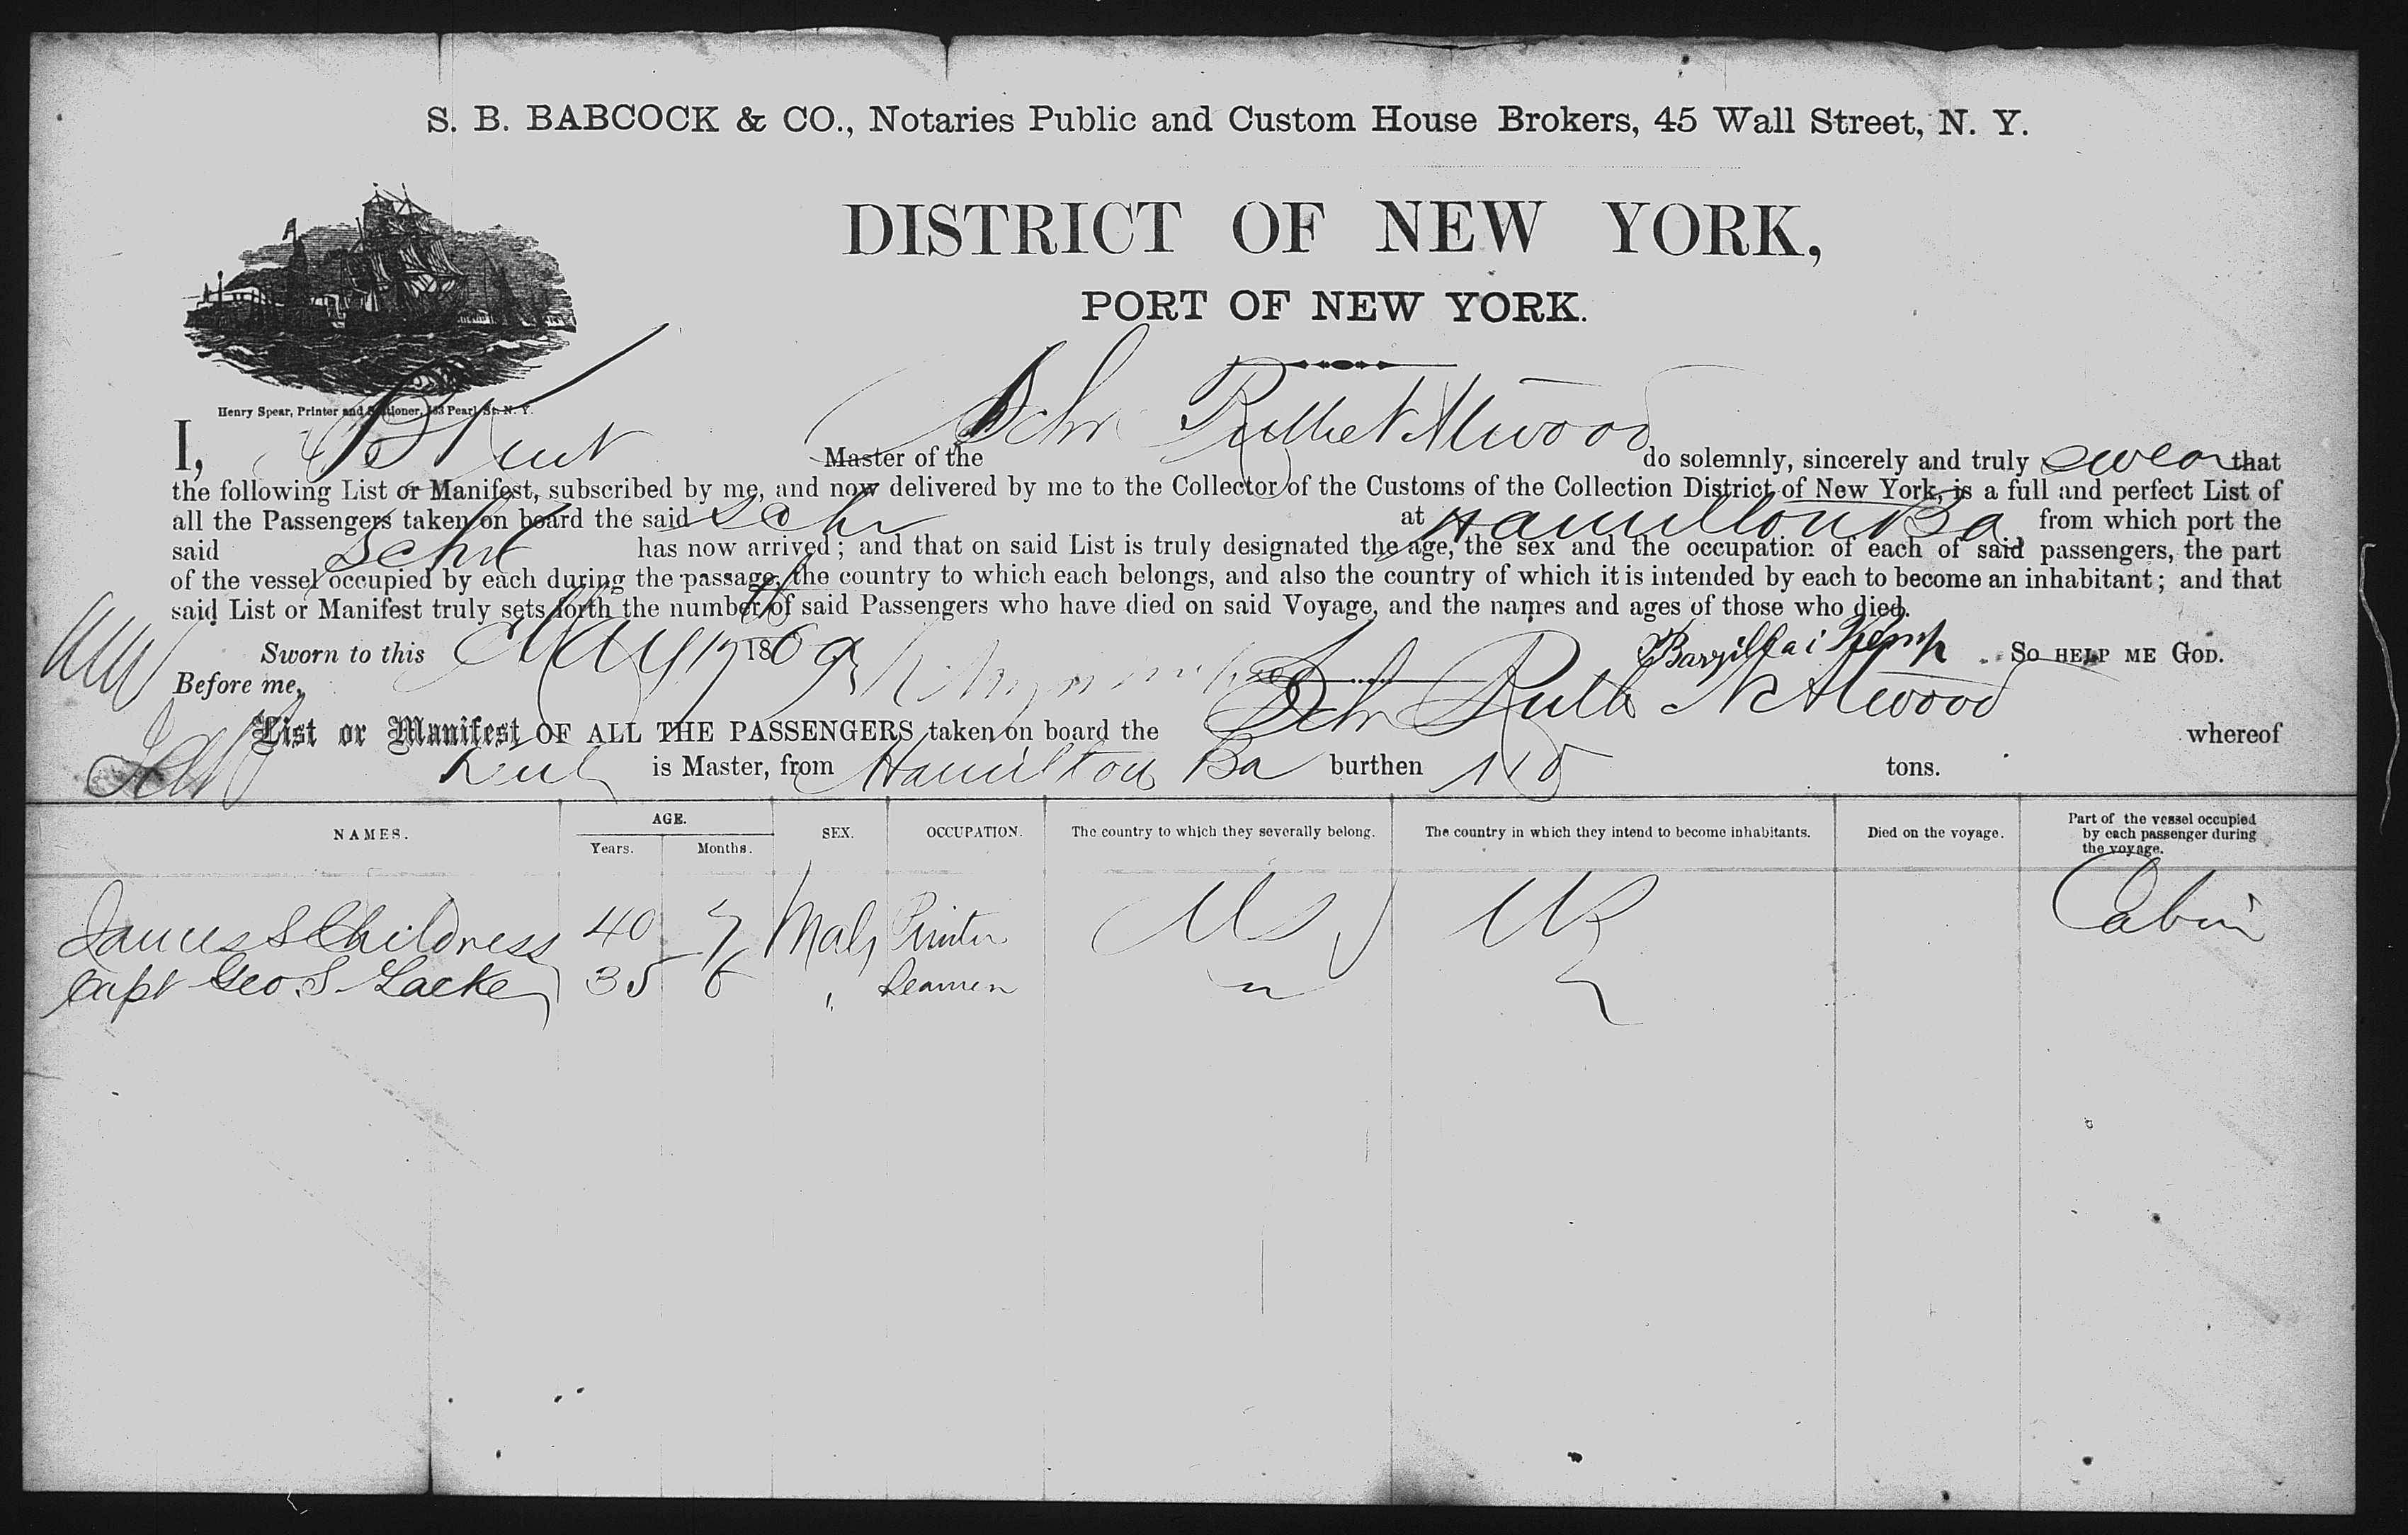 S. B. BABCOCK & CO., Notaries Public and Custom House Brokers, 45 Wall Street, N. Y.
DISTRICT OF NEW YORK,
PORT OF NEW YORK.
Henry Spear, Printer and Stationer, Pearl St. N. Y.
I, B Kent Master of the Schr Ruth N Atwood do solemnly, sincerely and truly swear that
the following List or Manifest, subscribed by me, and now delivered by me to the Collector of the Customs of the Collection District of New York, is a full and perfect List of
all the Passengers taken on board the said Schr at Hamilton Ba from which port the
said Schr has now arrived; and that on said List is truly designated the age, the sex and the occupation of each of said passengers, the part
of the vessel occupied by each during the passage, the country to which each belongs, and also the country of which it is intended by each to become an inhabitant; and that
said List or Manifest truly sets forth the number of said Passengers who have died on said Voyage, and the names and ages of those who died.
Sworn to this May 17 1869 Barzillai Kemp SO HELP ME GOD.
Before me,
List or Manifest OF ALL THE PASSENGERS taken on board the Schr Ruth N Atwood whereof
Kent is Master, from Hamilton Ba burthen tons.
NAMES. AGE. Years. Months. SEX. OCCUPATION. The country to which they severally belong. The country in which they intend to become inhabitants. Died on the voyage. Part of the vessel occupied by each passenger during the voyage.
James S Childress 40 7 Male Printer US Cabin
Capt Geo. S. Lacke 35 6 " Seamen "